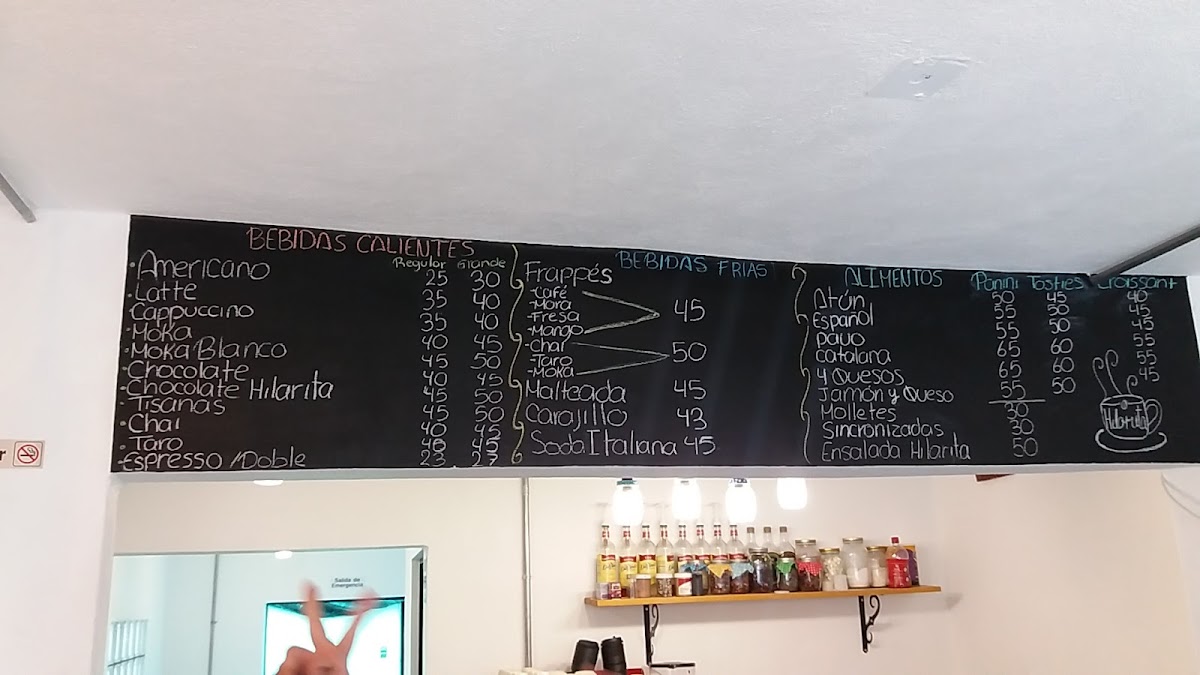 BEBIDAS CALIENTES
Regular Grande
• Americano 25 30
• Latte 35 40
• Cappuccino 35 40
• Moka 40 45
• Moka Blanco 45 50
• Chocolate 40 45
• Chocolate Hilarita 45 50
• Tisanas 45 50
• Chai 40 45
• Taro 45
• Espresso/Doble 23 27
BEBIDAS FRIAS
Frappés
-Café
-Mora
-Fresa
-Mango
45
-Chai
-Taro
-Moka
50
Malteada 45
Carajillo 43
Soda Italiana 45
ALIMENTOS Panini Tosties Croissant
Atún 50 45 40
Español 55 50 45
pavo 55 50 45
Catalana 65 60 55
4 Quesos 65 60 55
Jamón y Queso 55 50 45
Molletes 30
Sincronizadas 30
Ensalada Hilarita 50
Hilarita
Salida de
Emergencia